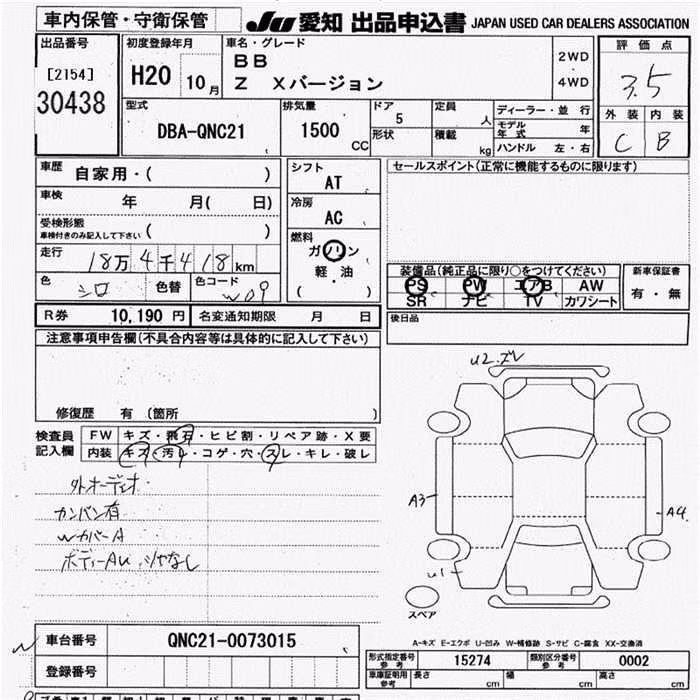 車内保管・守衛保管
JU 愛知 出品申込書 JAPAN USED CAR DEALERS ASSOCIATION
出品番号
[2154]
30438
初度登録年月
H20 10月
車名・グレード
BB
Z Xバージョン
2WD
・
4WD
評価点
3.5
外装 内装
C B
型式
DBA-QNC21
排気量
1500
CC
ドア
5
形状
定員
人
積載
kg
ディーラー・並行
モデル年式 年
ハンドル 左・右
車歴
自家用・( )
車検
年 月( 日)
受検形態
車検付きのみ記入して下さい ( )
走行
18万4千418km
色
シロ
色替
色コード
W09
シフト
AT
冷房
AC
燃料
ガソリン
軽・油
( )
セールスポイント(正常に機能するものに限ります)
装備品(純正品に限り○をつけてください)
PS PW エアB AW
SR ナビ TV カワシート
新車保証書
有・無
後日品
R券 10,190 円 名変通知期限 月 日
注意事項申告欄(不具合内容等は具体的に記入して下さい)
修復歴 有 (箇所 )
検査員
記入欄
FW キズ・飛石・ヒビ割・リペア跡・X要
内装 キズ・汚レ・コゲ・穴・スレ・キレ・破レ
外オーディオ
カンバン有
Wカバー A
U2.ズレ
A3
A4
U1
スペア
A-キズ E-エクボ U-凹み W-補修跡 S-サビ C-腐食 XX-交換済
車台番号 QNC21-0073015
登録番号
形式指定番号
参考
15274
類別区分番号
参考
0002
車庫証明用
参考
長さ cm
幅 cm
高さ cm